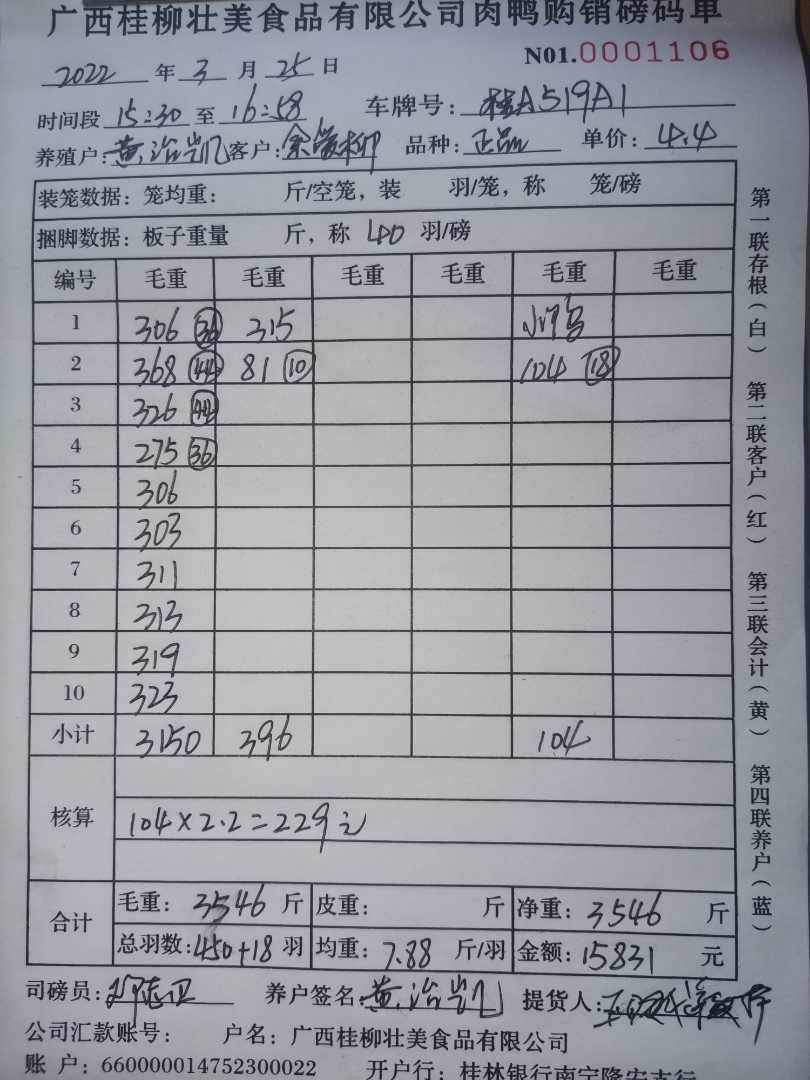 广西桂柳壮美食品有限公司肉鸭购销磅码单
2022 年 3 月 25 日 N01.0001106
时间段 15:30 至 16:58 车牌号: 桂A519A1
养殖户: 黄治凯 客户: 余 柳 品种: 正品 单价: 4.4
装笼数据: 笼均重: 斤/空笼, 装 羽/笼, 称 笼/磅
捆脚数据: 板子重量 斤, 称 40 羽/磅
编号 毛重 毛重 毛重 毛重 毛重 毛重
1 306 36 315
2 368 44 81 10 104 18
3 326
4 275 36
5 306
6 303
7 311
8 313
9 319
10 323
小计 3150 396 104
核算 104×2.2=229元
合计 毛重: 3546 斤 皮重: 斤 净重: 3546 斤
总羽数: 450+18 羽 均重: 7.88 斤/羽 金额: 15831 元
司磅员: 养户签名: 黄治凯 提货人:
公司汇款账号: 户名: 广西桂柳壮美食品有限公司
账 户: 660000014752300022 开户行: 桂林银行南宁隆安支行
第一联存根(白) 第二联客户(红) 第三联会计(黄) 第四联养户(蓝)